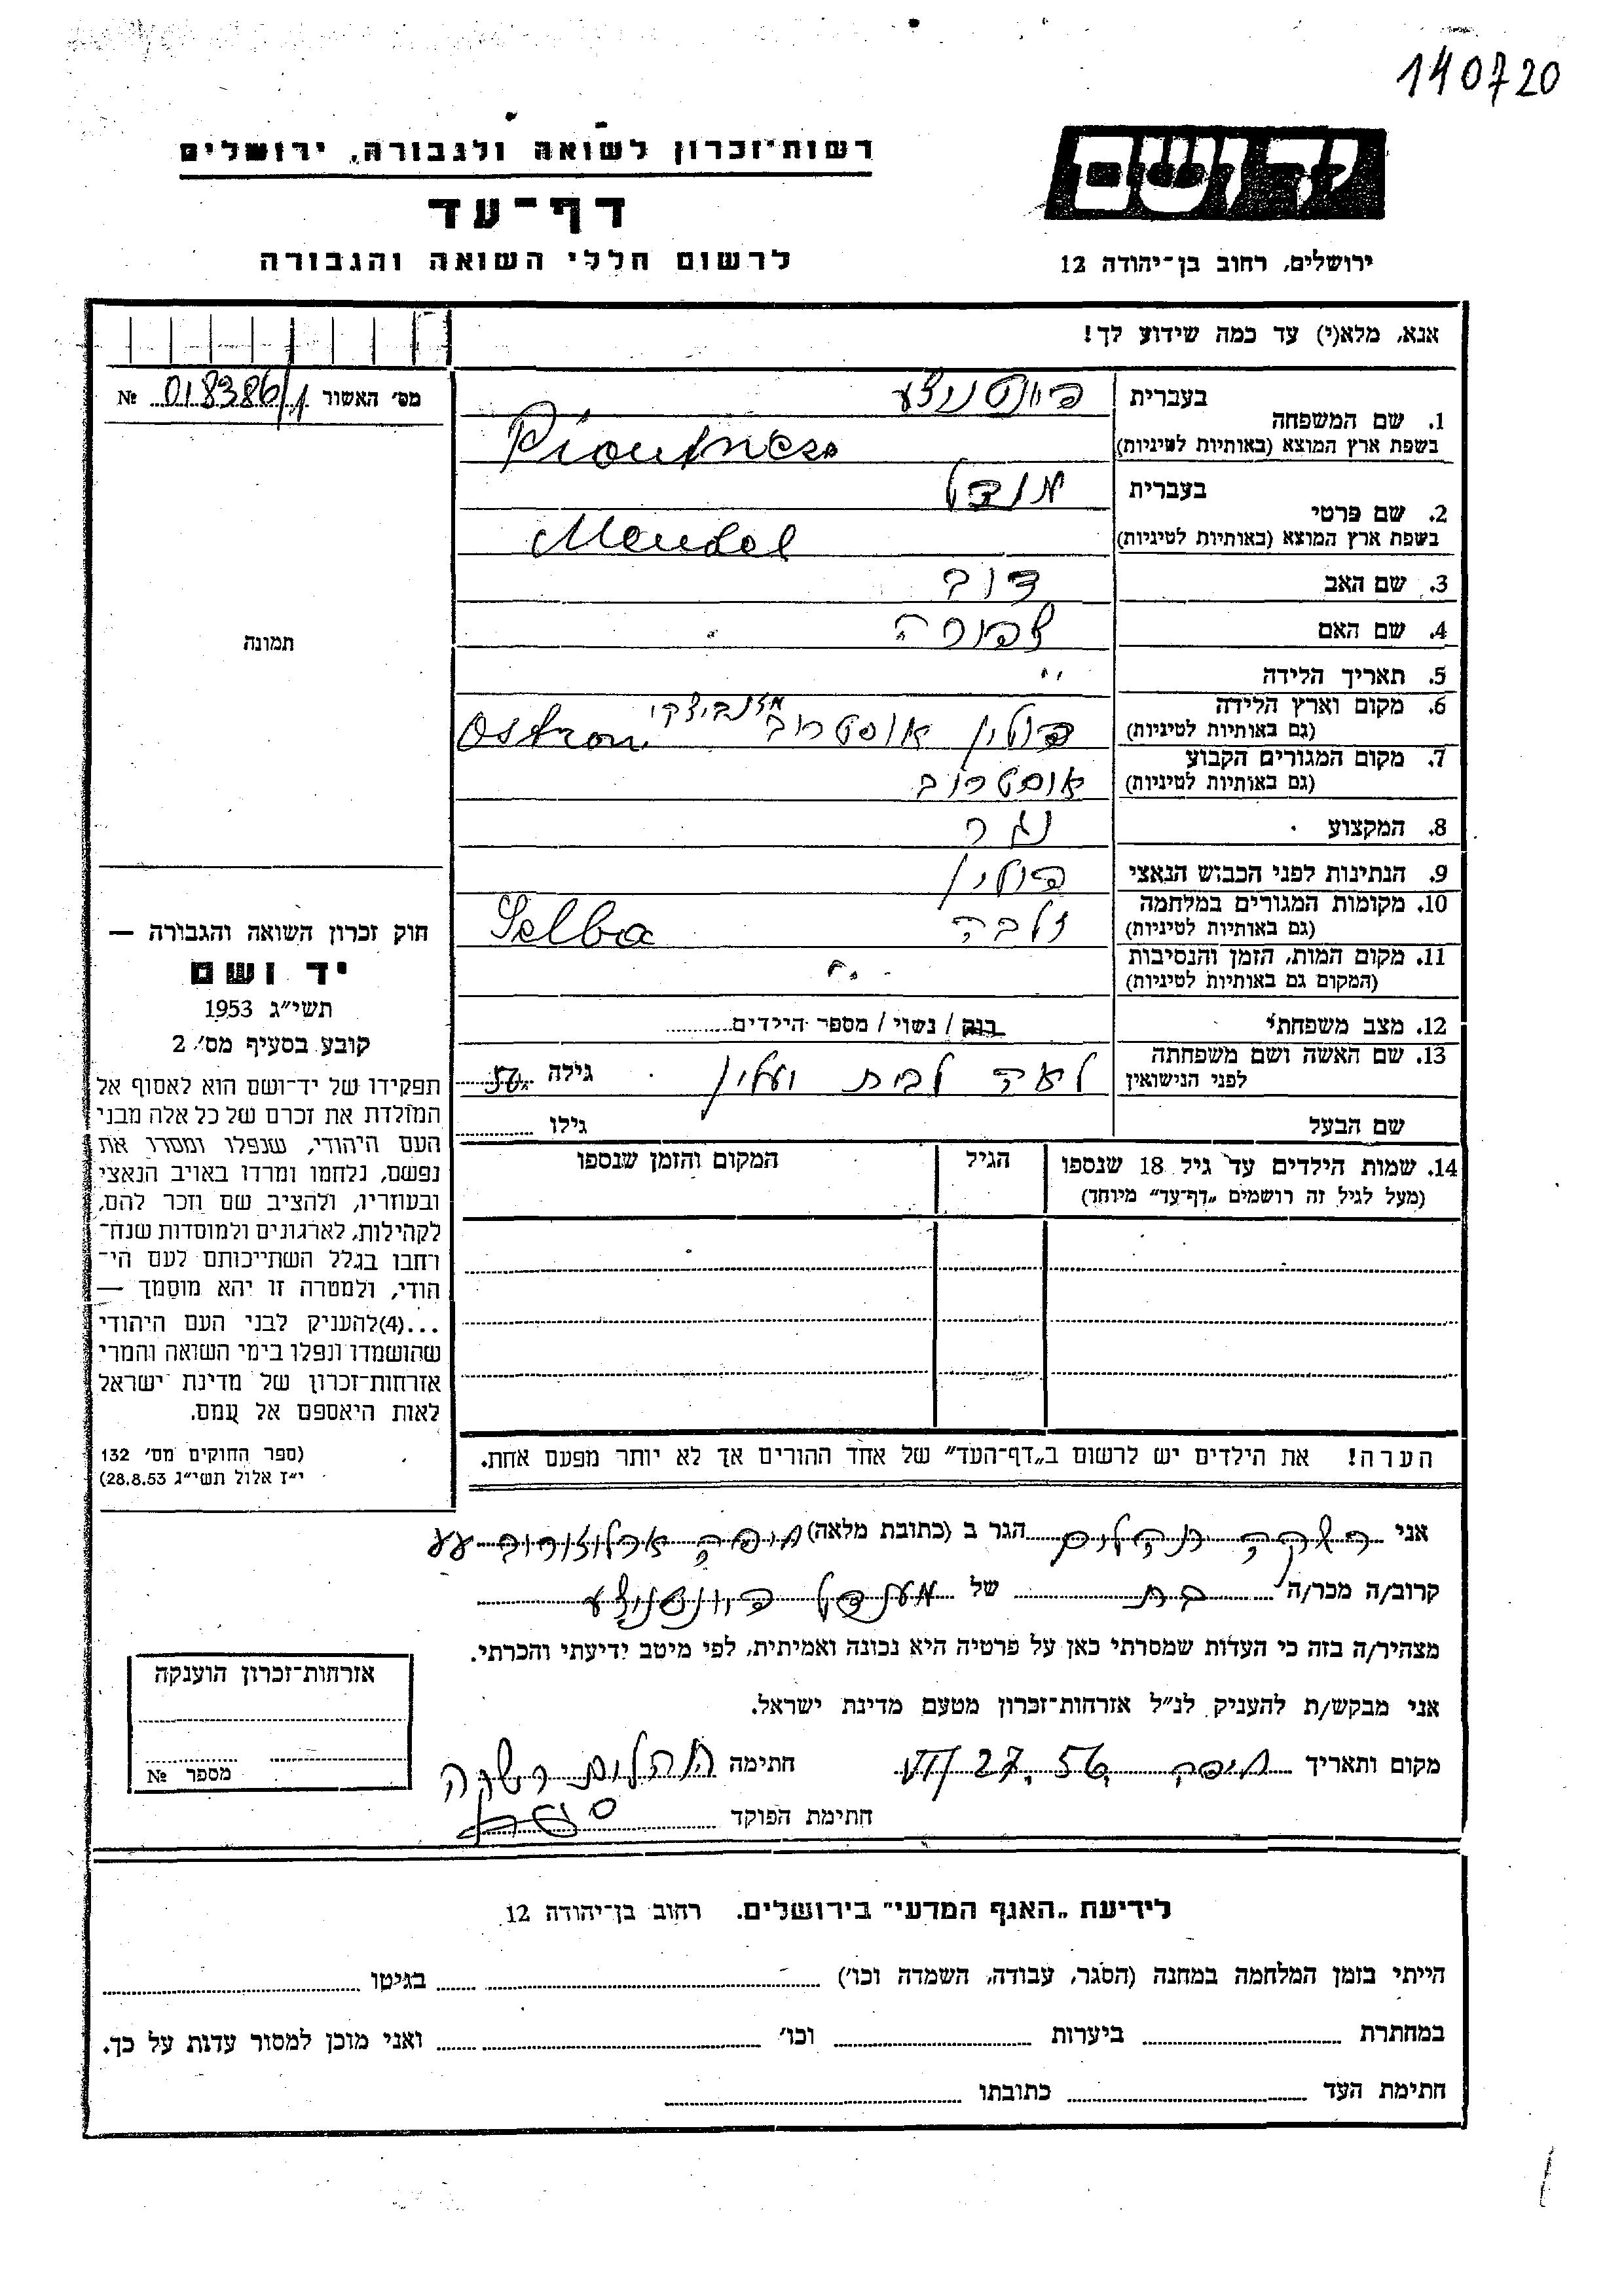 140720
יד ושם
רשות־זכרון לשואה ולגבורה, ירושלים
דף־עד
לרשום חללי השואה והגבורה
ירושלים, רחוב בן־יהודה 12
אנא, מלא(י) עד כמה שידוע לך!
מס׳ האשור № 018386/1
1. שם המשפחה בעברית פיונטניצע
בשפת ארץ המוצא (באותיות לטיניות)
2. שם פרטי בעברית מנדל
בשפת ארץ המוצא (באותיות לטיניות) Mendel
3. שם האב דוב
4. שם האם צפורה
5. תאריך הלידה
6. מקום וארץ הלידה (גם באותיות לטיניות) פולין אוסטרוב מזוביצקי Ostrow
7. מקום המגורים הקבוע (גם באותיות לטיניות) אוסטרוב
8. המקצוע נגר
9. הנתינות לפני הכבוש הנאצי פולין
10. מקומות המגורים במלחמה (גם באותיות לטיניות) זלבה Selba
11. מקום המות, הזמן והנסיבות (המקום גם באותיות לטיניות)
12. מצב משפחתי רווק / נשוי / מספר הילדים
13. שם האשה ושם משפחתה לפני הנישואין לאה לבית גילה 50
שם הבעל גילו
14. שמות הילדים עד גיל 18 שנספו (מעל לגיל זה רושמים „דף־עד״ מיוחד) הגיל המקום והזמן שנספו
הערה! את הילדים יש לרשום ב„דף־העד״ של אחד ההורים אך לא יותר מפעם אחת.
תמונה
חוק זכרון השואה והגבורה —
יד ושם
תשי״ג 1953
קובע בסעיף מס׳ 2
תפקידו של יד־ושם הוא לאסוף אל
המולדת את זכרם של כל אלה מבני
העם היהודי, שנפלו ומסרו את
נפשם, נלחמו ומרדו באויב הנאצי
ובעוזריו, ולהציב שם וזכר להם,
לקהילות, לארגונים ולמוסדות שנח־
רחבו בגלל השתייכותם לעם הי־
הודי, ולמטרה זו יהא מוסמך —
...(4)להעניק לבני העם היהודי
שהושמדו ונפלו בימי השואה והמרי
אזרחות־זכרון של מדינת ישראל
לאות היאספם אל עמם.
(ספר החוקים מס׳ 132
י״ז אלול תשי״ג 28.8.53)
אני רבקה הגר ב (כתובת מלאה) חיפה ארלוזורוב
קרוב/ה מכר/ה בת של מענדל פיונטניצע
מצהיר/ה בזה כי העדות שמסרתי כאן על פרטיה היא נכונה ואמיתית, לפי מיטב ידיעתי והכרתי.
אני מבקש/ת להעניק לנ״ל אזרחות־זכרון מטעם מדינת ישראל.
מקום ותאריך חיפה 27.56/VII חתימה רבקה
חתימת הפוקד
אזרחות־זכרון הוענקה
מספר №
לידיעת „האגף המדעי״ בירושלים. רחוב בן־יהודה 12
הייתי בזמן המלחמה במחנה (הסגר, עבודה, השמדה וכו׳) בגיטו
במחתרת ביערות וכו׳ ואני מוכן למסור עדות על כך.
חתימת העד כתובתו